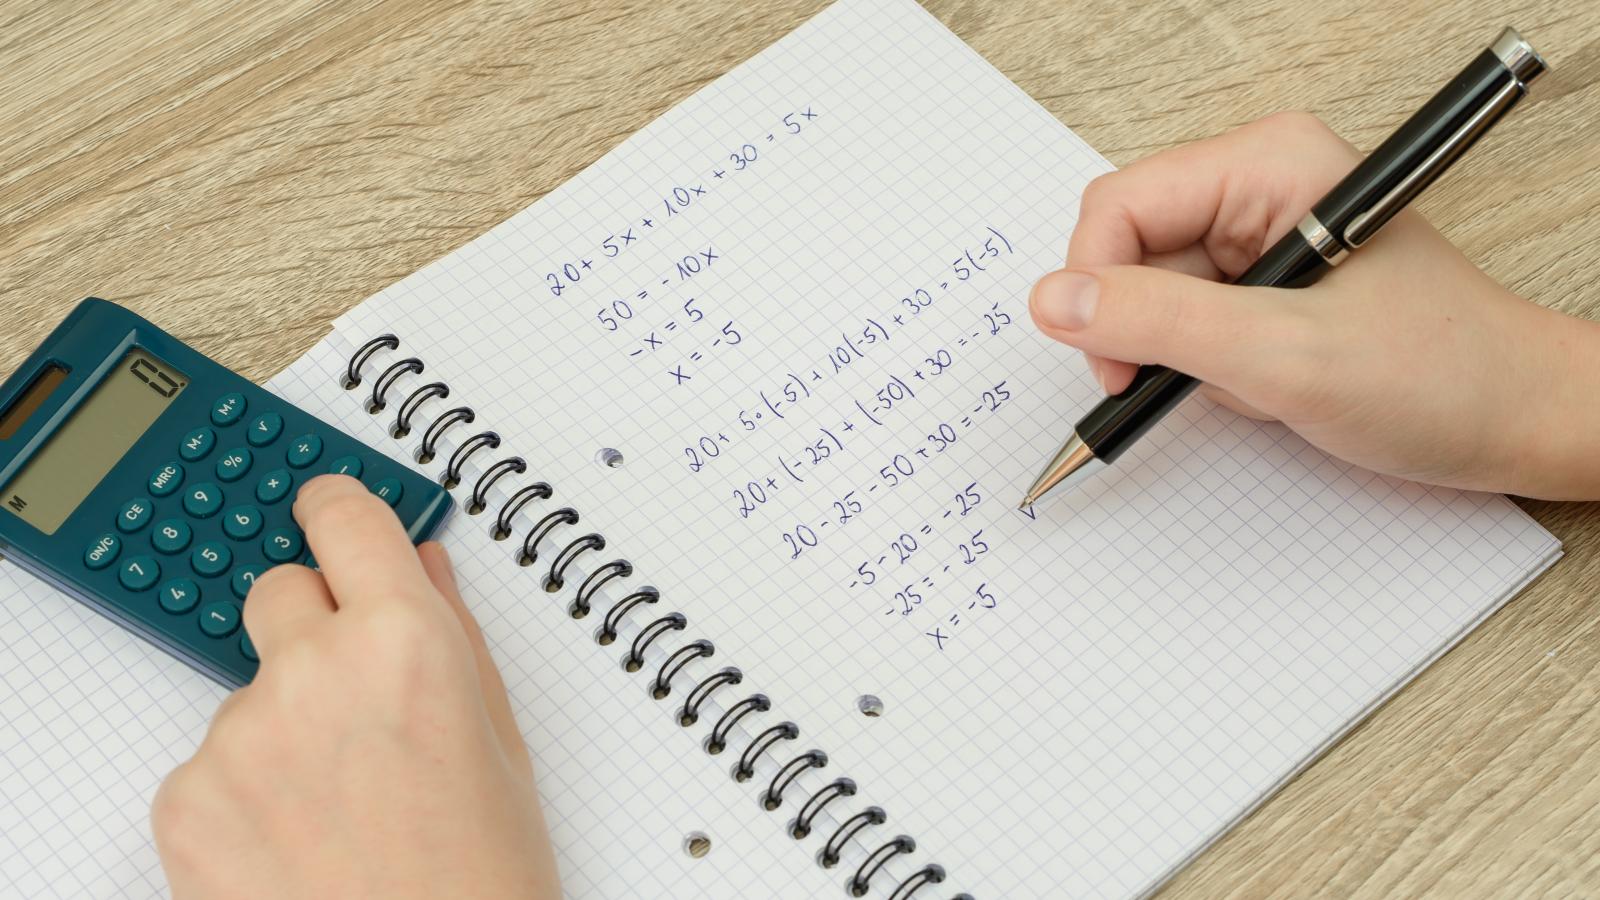 20 + 5x + 10x + 30 = 5x
50 = - 10x
-x = 5
x = -5
20 + 5•(-5) + 10(-5) + 30 = 5(-5)
20 + (-25) + (-50) + 30 = -25
20 - 25 - 50 + 30 = -25
-5 - 20 = -25
-25 = -25
x = -5
0.
M
M+
√
÷
-
=
M-
%
×
MRC
9
6
3
CE
8
5
2
ON/C
7
4
1